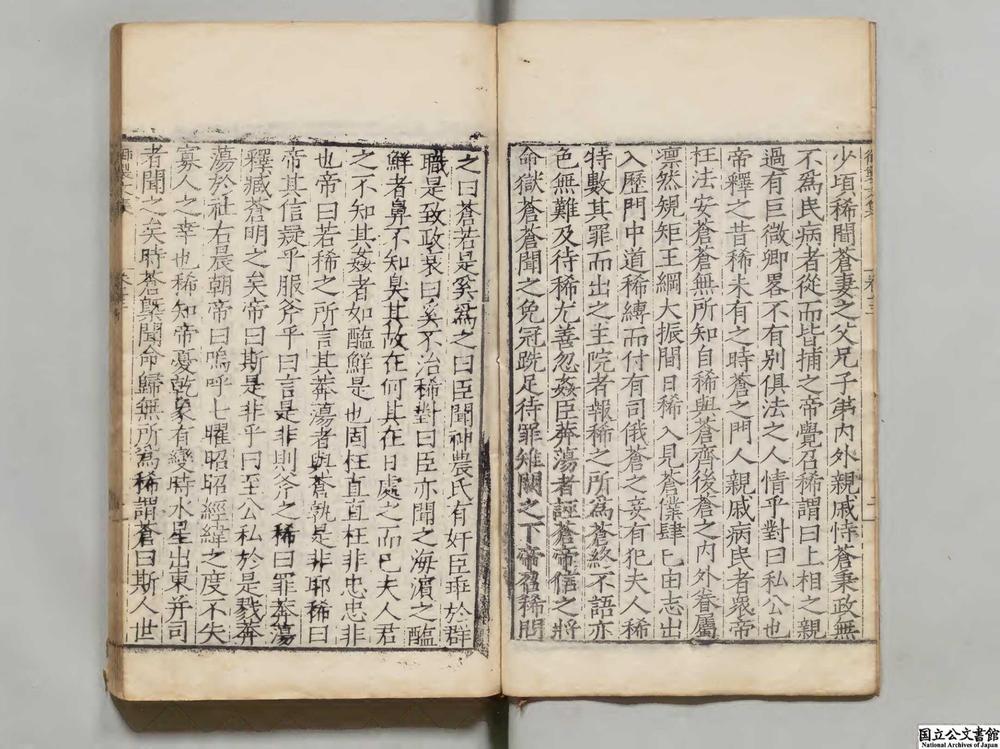 少頃稀聞蒼妻之父兄子第內外親戚恃蒼秉政無
不爲民病者從而皆捕之帝覺召稀謂曰上相之親
過有巨微卿畧不有別俱法之人情乎對曰私公也
帝釋之昔稀未有之時蒼之門人親戚病民者衆帝
枉法安蒼蒼無所知自稀與蒼齊後蒼之內外眷屬
凛然規矩王綱大振間日稀入見蒼僕肆巳由志出
入歷門中道稀縛而付有司俄蒼之妾有犯夫人稀
特數其罪而出之主院者報稀之所爲蒼終不語亦
色無難及待稀尤善忽姦臣莽蕩者誣蒼帝信之將
命獄蒼蒼聞之免冠跣足待罪雉闕之下帝召稀問
之曰蒼若是奚爲之曰臣聞神農氏有奸臣乖於群
職是致政衰曰奚不治稀對曰臣亦聞之海濵之醢
鮮者鼻不知臭其故在何其在日處之而巳夫人君
之不知其姦者如醢鮮是也固枉直直枉非忠忠非
也帝曰若稀之所言其莽蕩者與蒼孰是非耶稀曰
帝其信疑乎服斧乎曰言是非則斧之稀曰罪莽蕩
釋藏蒼明之矣帝曰斯是非乎曰至公私於是戮莽
蕩於社右晨朝帝曰嗚呼七曜昭昭經緯之度不失
寡人之幸也稀知帝憂乾象有變時水星出東井司
者聞之矣時蒼槩聞命歸無所爲稀謂蒼曰斯人世
国立公文書館
National Archives of Japan